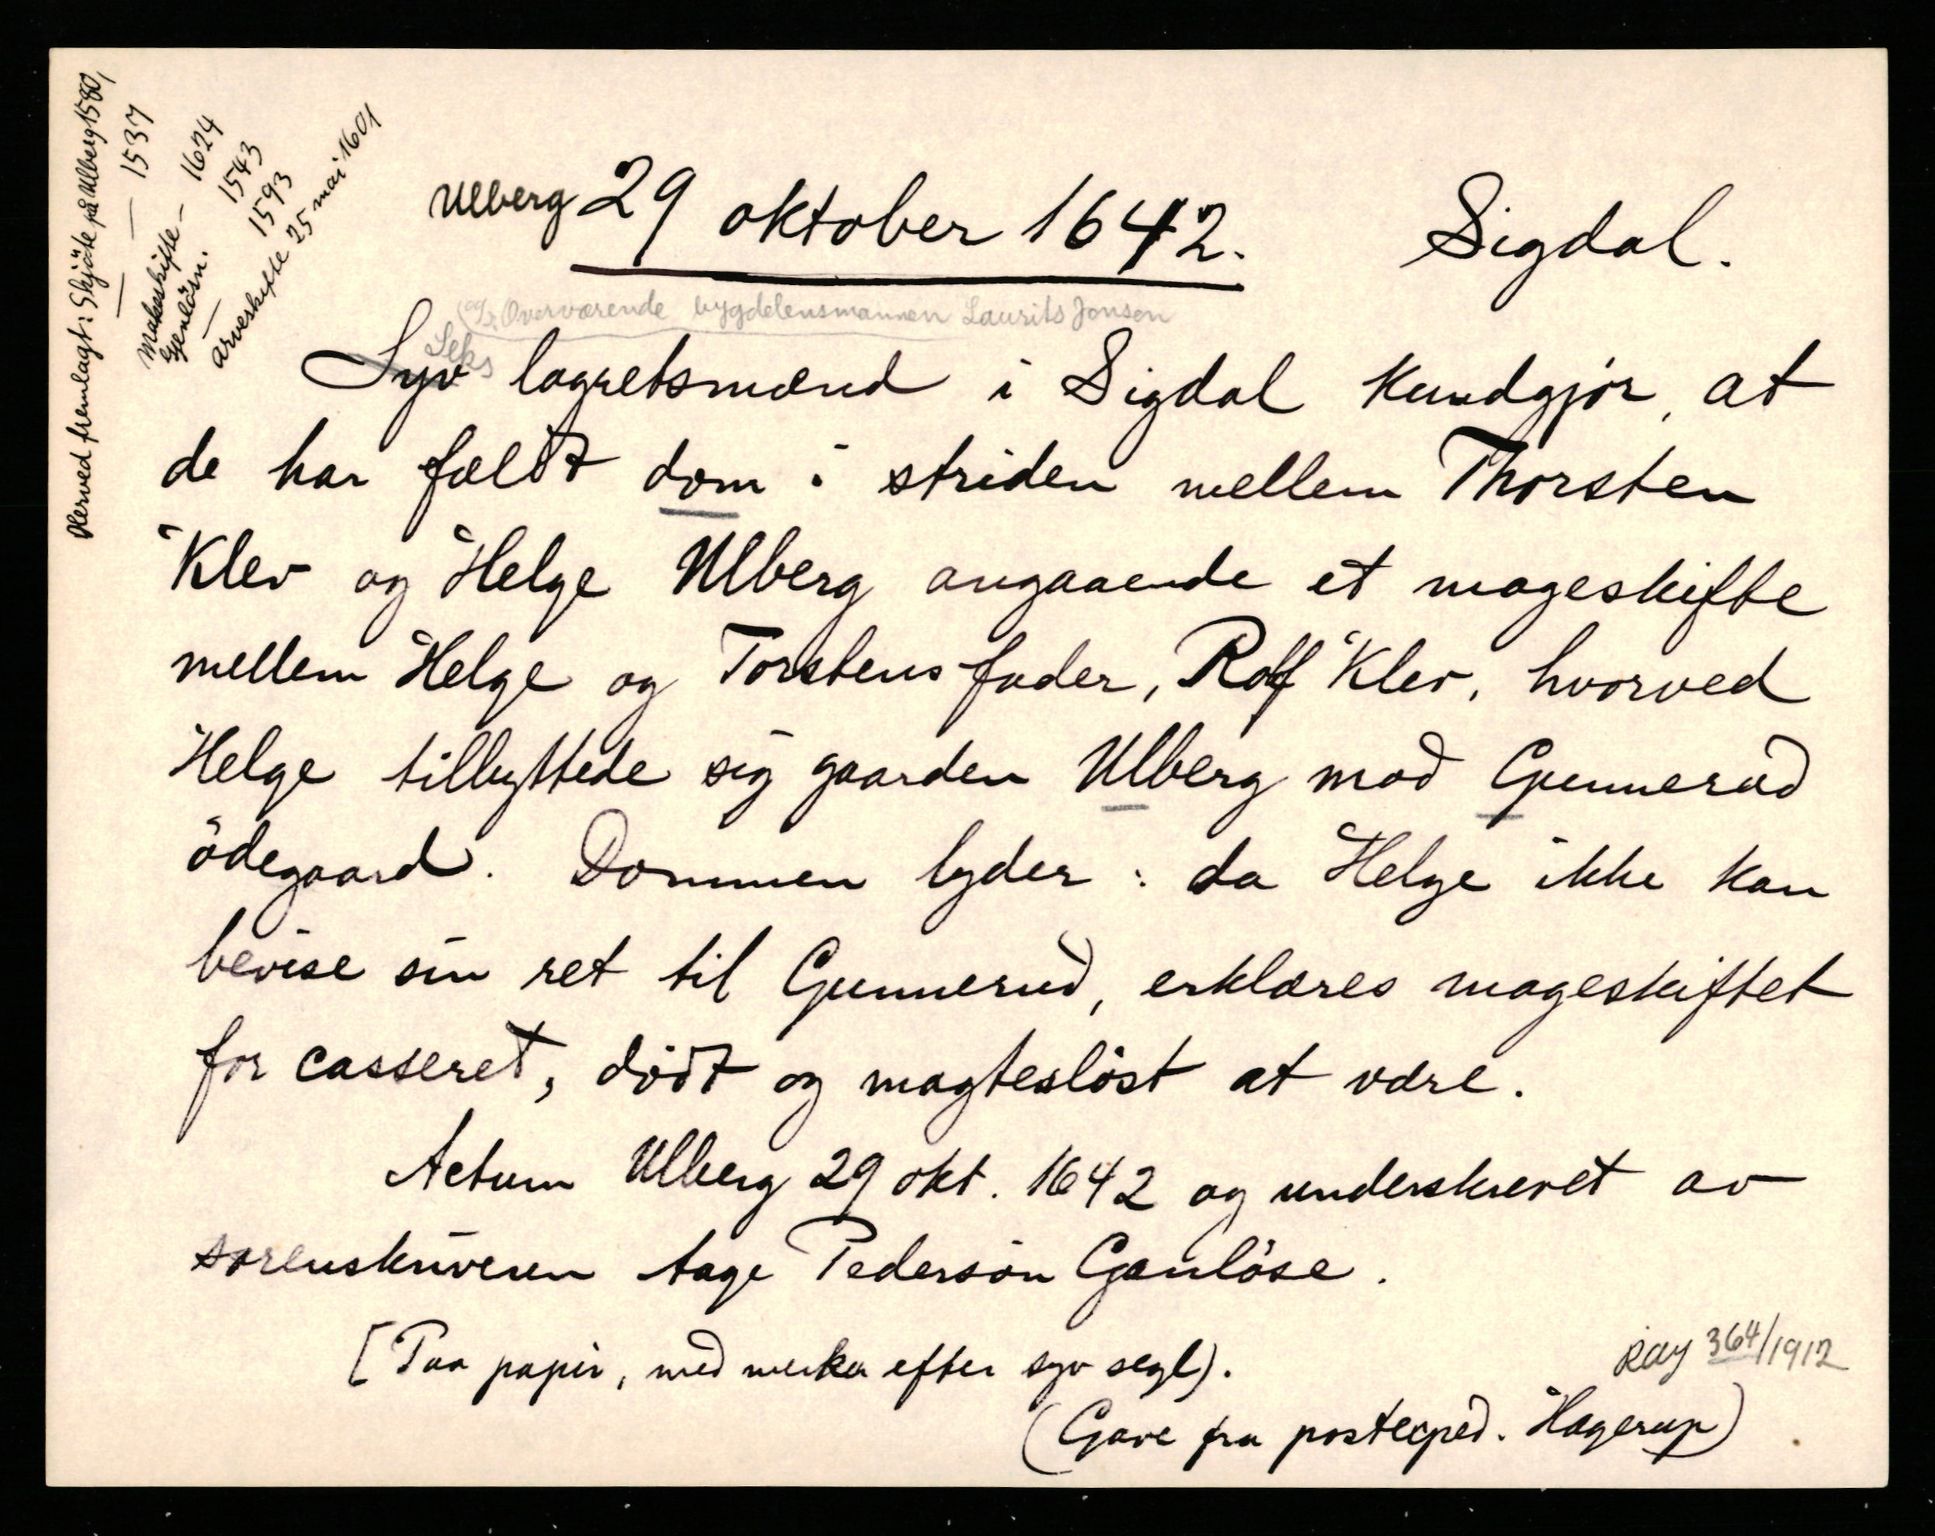 Herved fremlagt: Skjöte på Ulberg 1580,
— — 1537
Makeskifte — 1624
Gjenlösn. 1543
— 1593
Arveskifte 25 mai 1601
Ulberg 29 oktober 1642. Sigdal.
Overværende bygdelensmannen Laurits Jonsen
Seks
Syv lagretsmænd i Sigdal kundgjör, at
de har fældt dom i striden mellem Thorsten
Klev og Helge Ulberg angaaende et mageskifte
mellem Helge og Torstens fader, Rolf Klev, hvorved
Helge tilbyttede sig gaarden Ulberg mod Gunnerud
ödegaard. Dommen lyder: da Helge ikke kan
bevise sin ret til Gunnerud, erklæres mageskiftet
for casseret, dödt og magteslöst at være.
Actum Ulberg 29 okt. 1642 og underskrevet av
sorenskriveren Aage Pedersön Ganlöse.
[Paa papir, med merker efter syv segl).
364/1912
(Gave fra postexped. Hagerup)